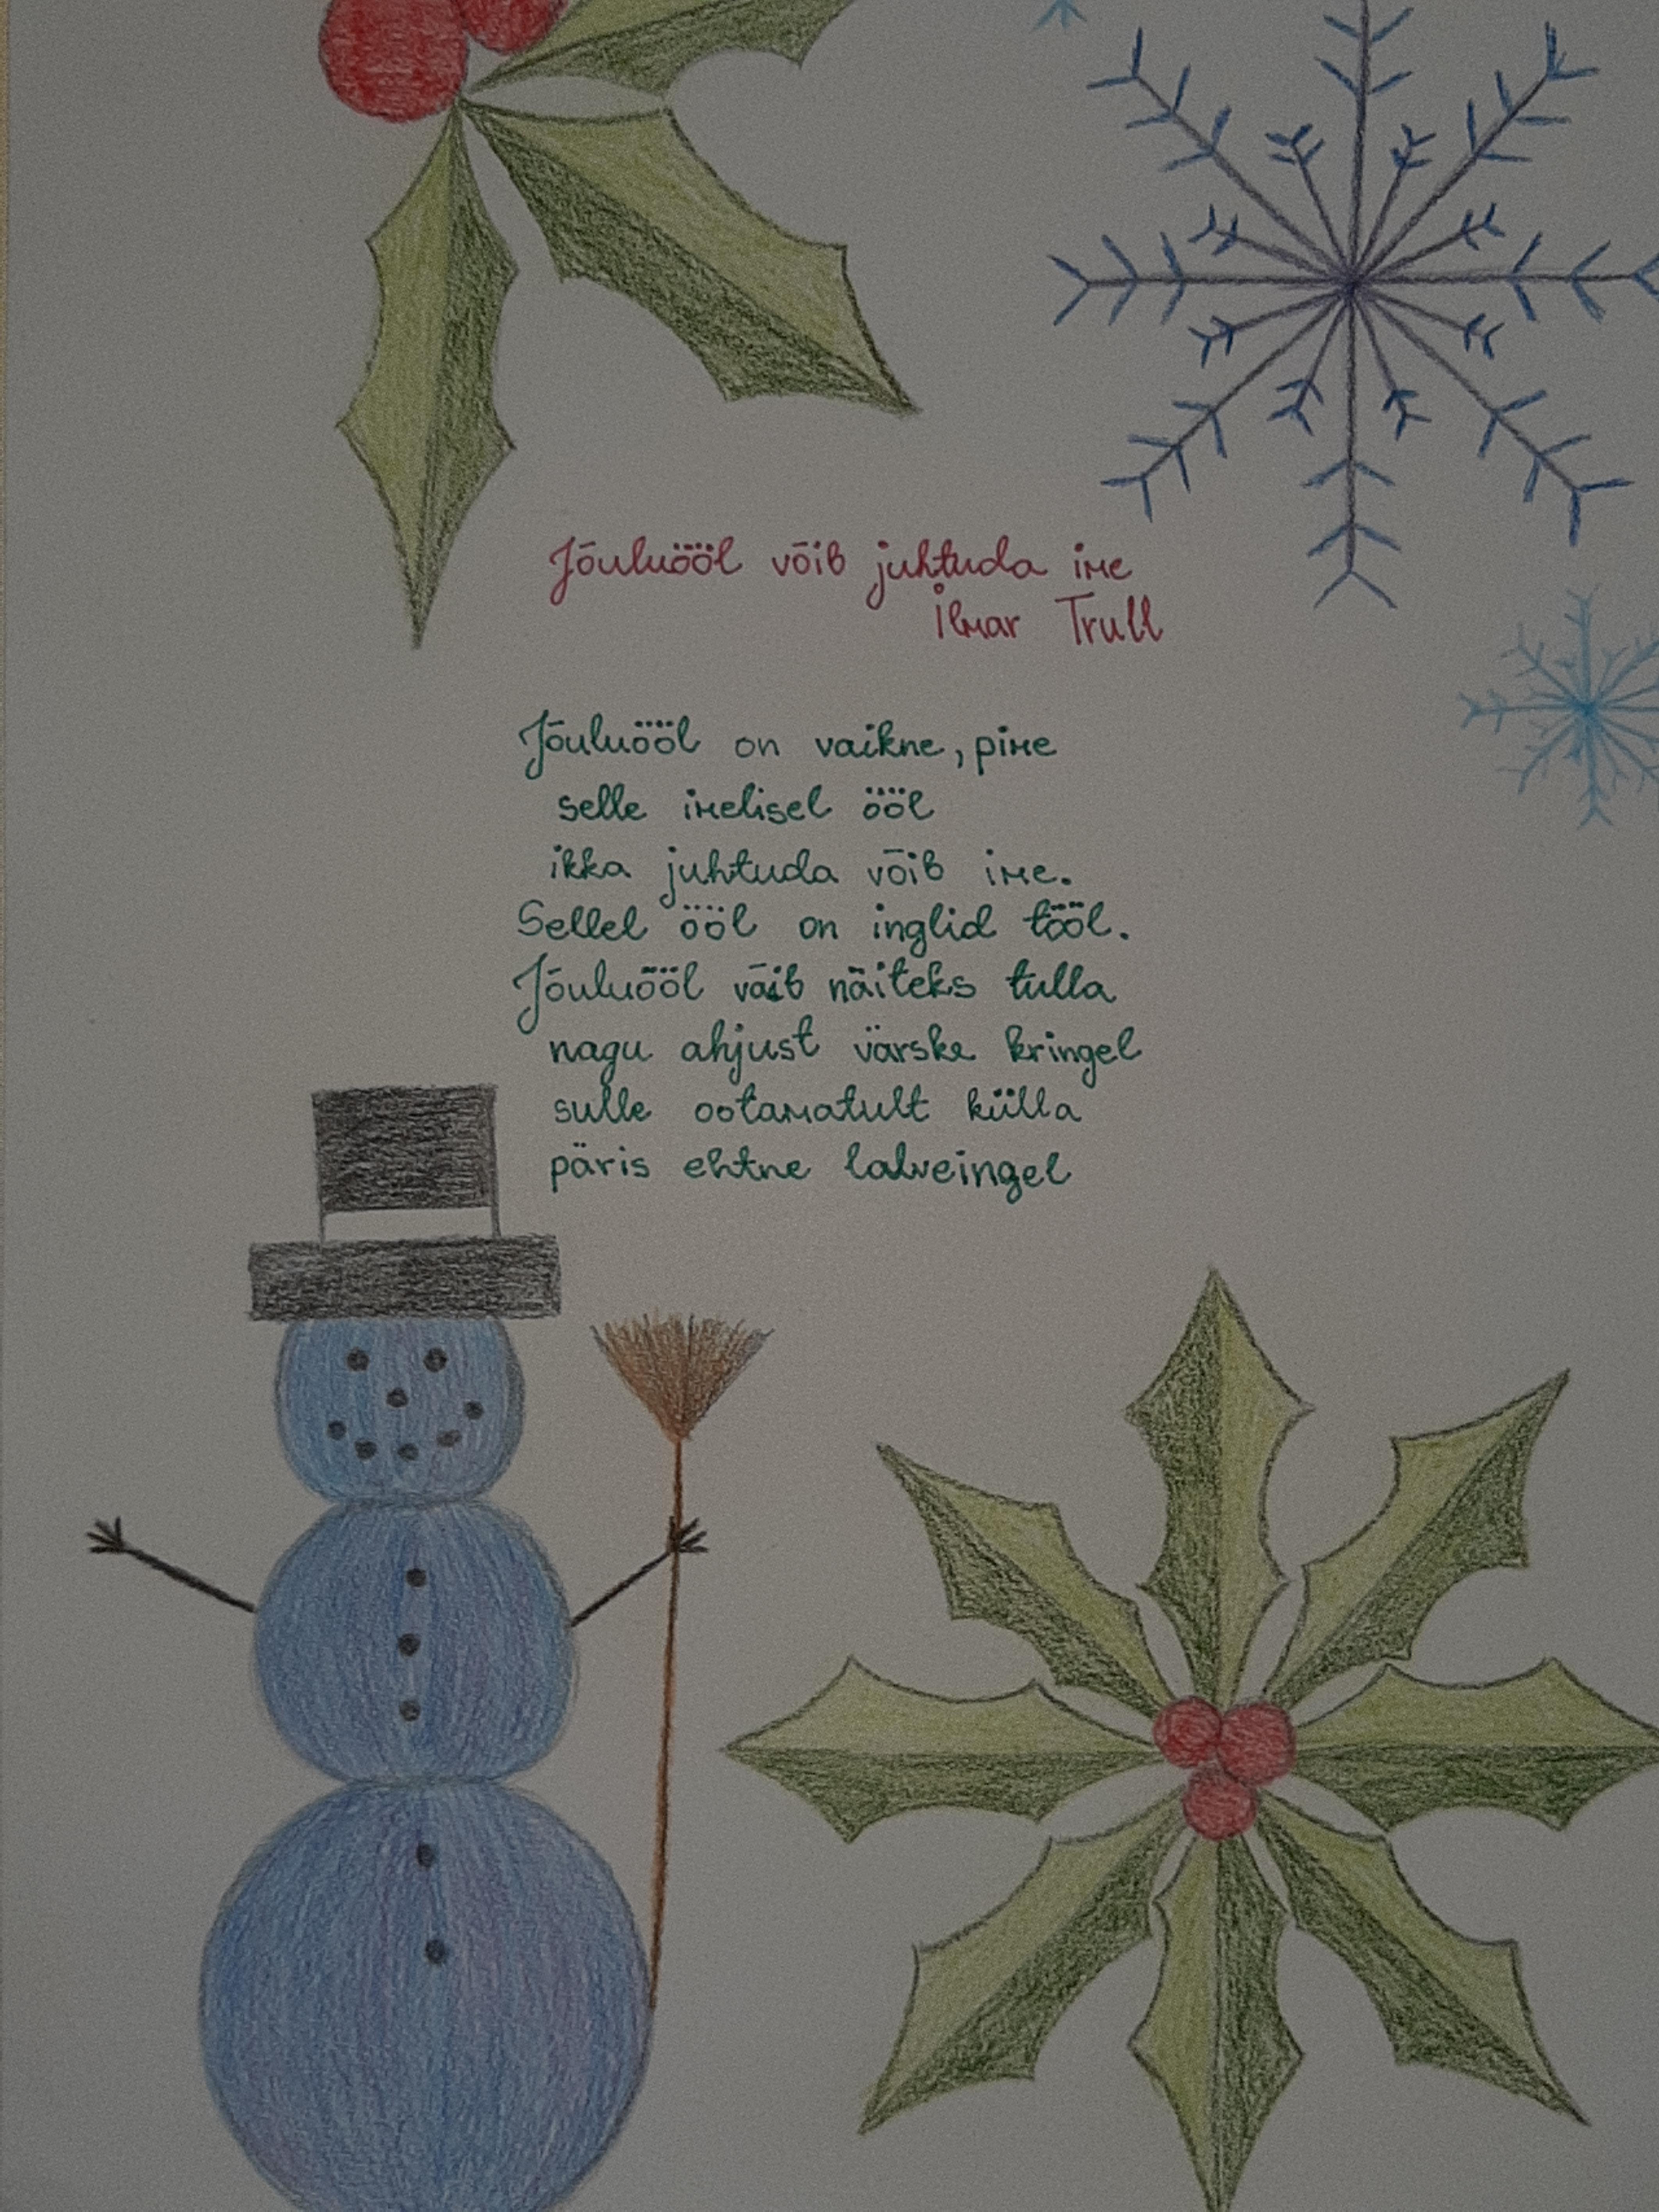 Jõuluööl võib juhtuda ime
Ilmar Trull
Jõuluööl on vaikne, pime
selle imelisel ööl
ikka juhtuda võib ime.
Sellel ööl on inglid tööl.
Jõuluööl võib näiteks tulla
nagu ahjust värske kringel
sulle ootamatult külla
päris ehtne talveingel